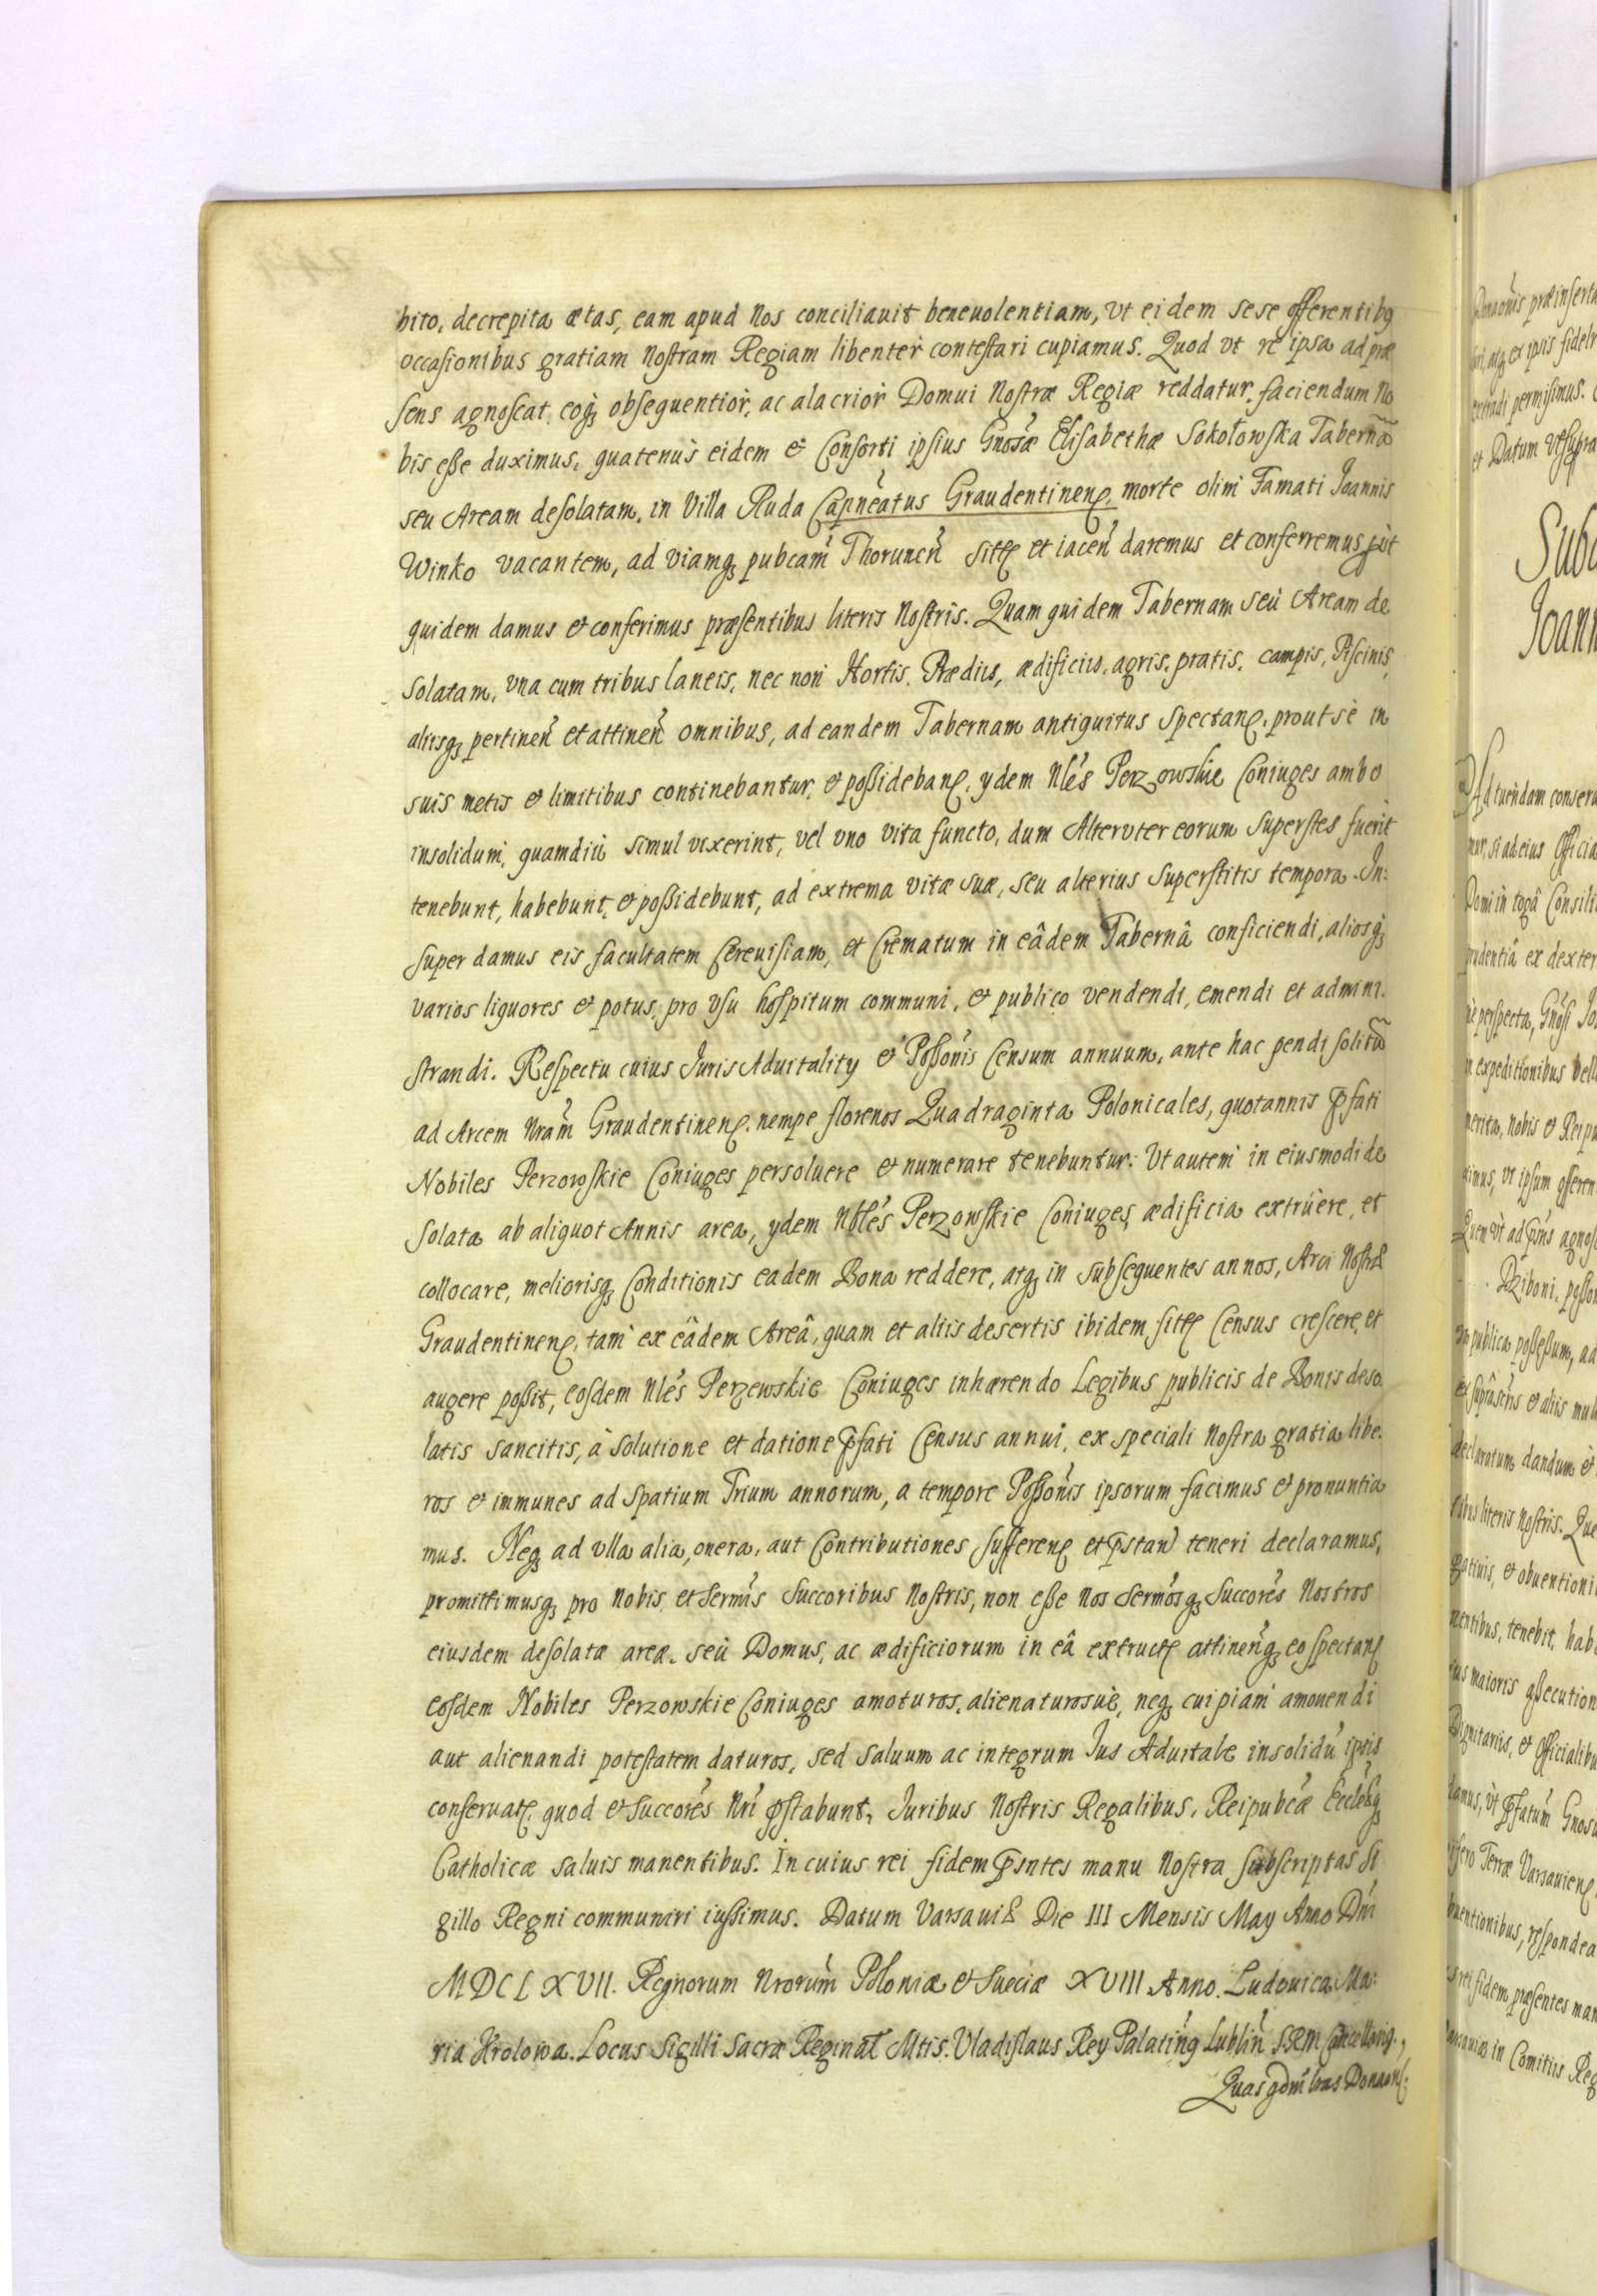 bito, decrepita ætas, eam apud Nos conciliauit beneuolentiam, vt eidem sese offerentibq
occasionibus gratiam Nostram Regiam libenter contestari cupiamus. Quod vt re ipsa ad præ
sens agnoscat eoq obsequentior, ac alacrior Domui Nostræ Regiæ reddatur, faciendum No
bis esse duximus, quatenus eidem et Consorti ipsius Gnosæ Elisabethæ Sokołowska Tabernã
seu Aream desolatam, in Villa Ruda Capneatus Graudentinen, morte olim Famati Joannis
Winko vacantem, ad viamq pubcam Thorunen site et iacen daremus et conferremus, sùt
quidem damus et conferimus præsentibus literis Nostris. Quam quidem Tabernam seù Aream de
solatam, vna cum tribus laneis, nec non Hortis, Prædiis, ædificiis, agris, pratis, campis, Piscinis,
aliisq pertinen et attinen omnibus, ad eandem Tabernam antiquitus Spectan, prout sè in
suis metis et limitibus continebantur, et possideban, ydem Nles Perzowskie Coniuges ambo
insolidum, quamdiù simul vixerint, vel vno vita functo, dum Alteruter eorum Superstes fuerit
tenebunt, habebunt, et possidebunt, ad extrema vitæ suæ, seu alterius Superstitis tempora. In:
super damus eis facultatem Cereuisiam, et Crematum in eâdem Tabernâ conficiendi, aliosq
varios liquores et potus, pro vsu hospitum communi, et publico vendendi, emendi et admini.
strandi. Respectu cuius Juris Aduitality et Possonis Censum annuum, ante hac pendi solitũ
ad Arcem Nram Graudentinen. nempe florenos Quadraginta Polonicales, quotannis pfati
Nobiles Perzowskie Coniuges persoluere et numerare tenebuntur. Vt autem in eiusmodi de
solata ab aliquot Annis area, ydem Nbles Perzowskie Coniuges, ædificia extruere, et
collocare, meliorisq Conditionis eadem Bona reddere, atq in subsequentes annos, Arci Nostræ
Graudentinen, tam ex eâdem Areâ, quam et aliis desertis ibidem site Census crescere, et
augere possit, eosdem Nles Perzewskie Coniuges inhærendo Legibus publicis de Bonis deso
latis sancitis, à solutione et datione pfati Census annui, ex speciali Nostra gratia libe.
ros et immunes ad spatium Trium annorum, a tempore Possonis ipsorum facimus et pronuntia
mus. Neq ad vlla alia, onera, aut Contributiones sufferen et pstan teneri declaramus,
promittimusq pro Nobis et Sermis Succoribus Nostris, non esse Nos Sermosq Succores Nostros
eiusdem desolatæ areæ, seù Domus, ac ædificiorum in eâ extructe attinenq eo spectan
eosdem Nobiles Perzowskie Coniuges amoturos, alienaturosuè, neq cuipiam amouendi
aut alienandi potestatem daturos, sed saluum ac integrum Jus Aduitale insolidũ ipsis
conseruate, quod et Succores Nri pstabunt, Juribus Nostris Regalibus, Reipubcæ Ecclesq
Catholicæ saluis manentibus. In cuius rei fidem psntes manu Nostra subscriptas Si
gillo Regni communiri iussimus. Datum Varsauiæ Die III Mensis May Anno Dni
MDCLXVII. Regnorum Nrorum Poloniæ et Sueciæ XVIII Anno. Ludouica Ma:
ria Krolowa. Locus Sigilli Sacræ Reginal Mtis. Vladislaus Rey Palating Lublin SRM Cancellarig.
Quas qdm lras Donaon: